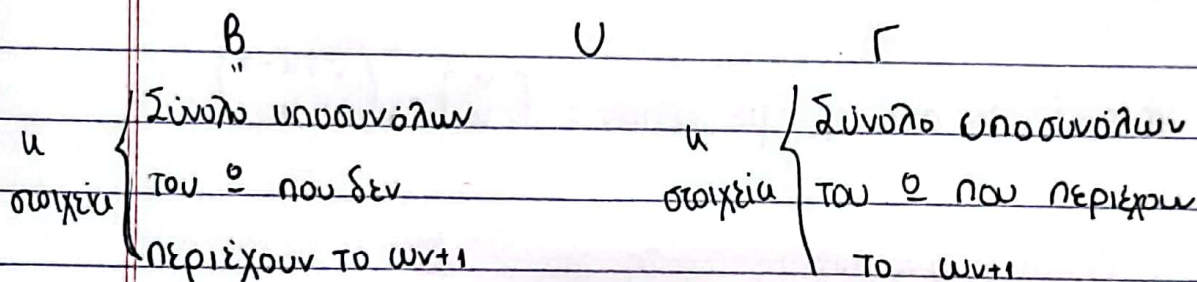 Β ∪ Γ
"
Σύνολο υποσυνόλων
του Ω που δεν
περιέχουν το ων+1
κ
στοιχεία
Σύνολο υποσυνόλων
του Ω που περιέχουν
το ων+1
κ
στοιχεία